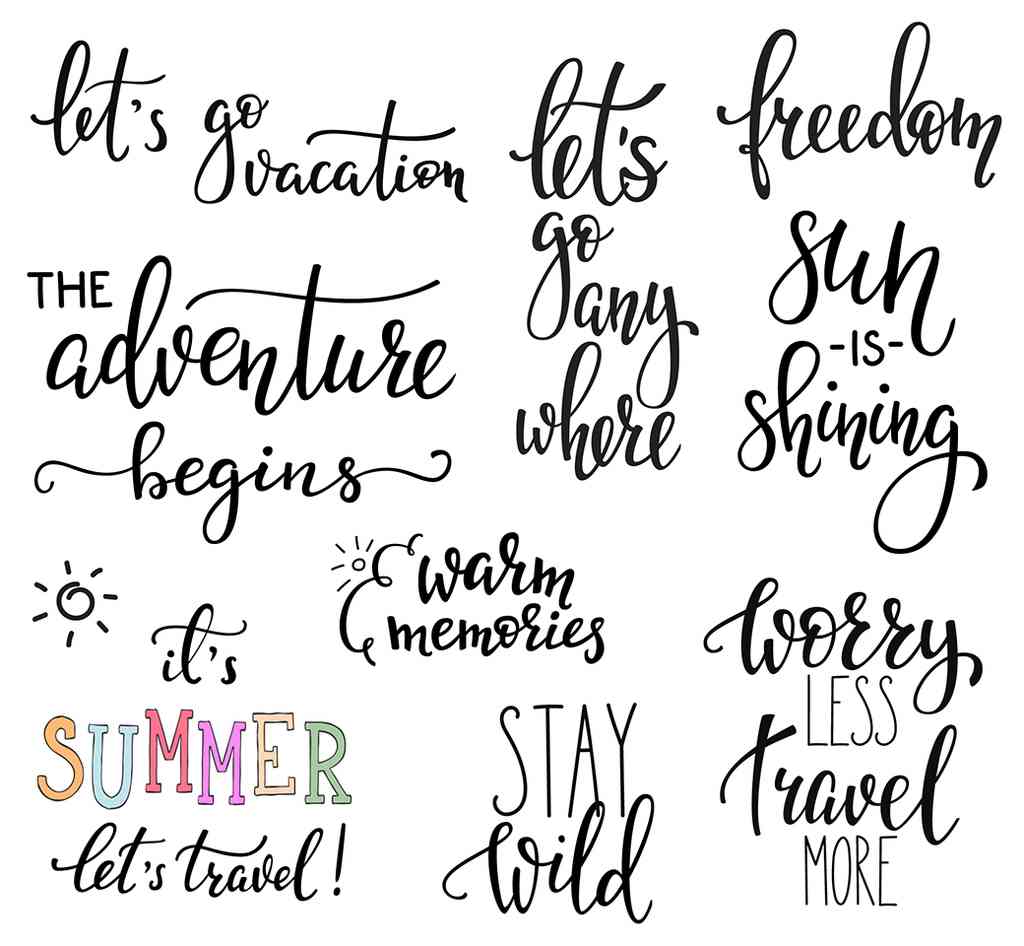 let's go
vacation
let's
go
any
where
freedom
THE
adventure
begins
sun
-IS-
shining
warm
memories
it's
SUMMER
let's travel!
STAY
wild
worry
LESS
travel
MORE